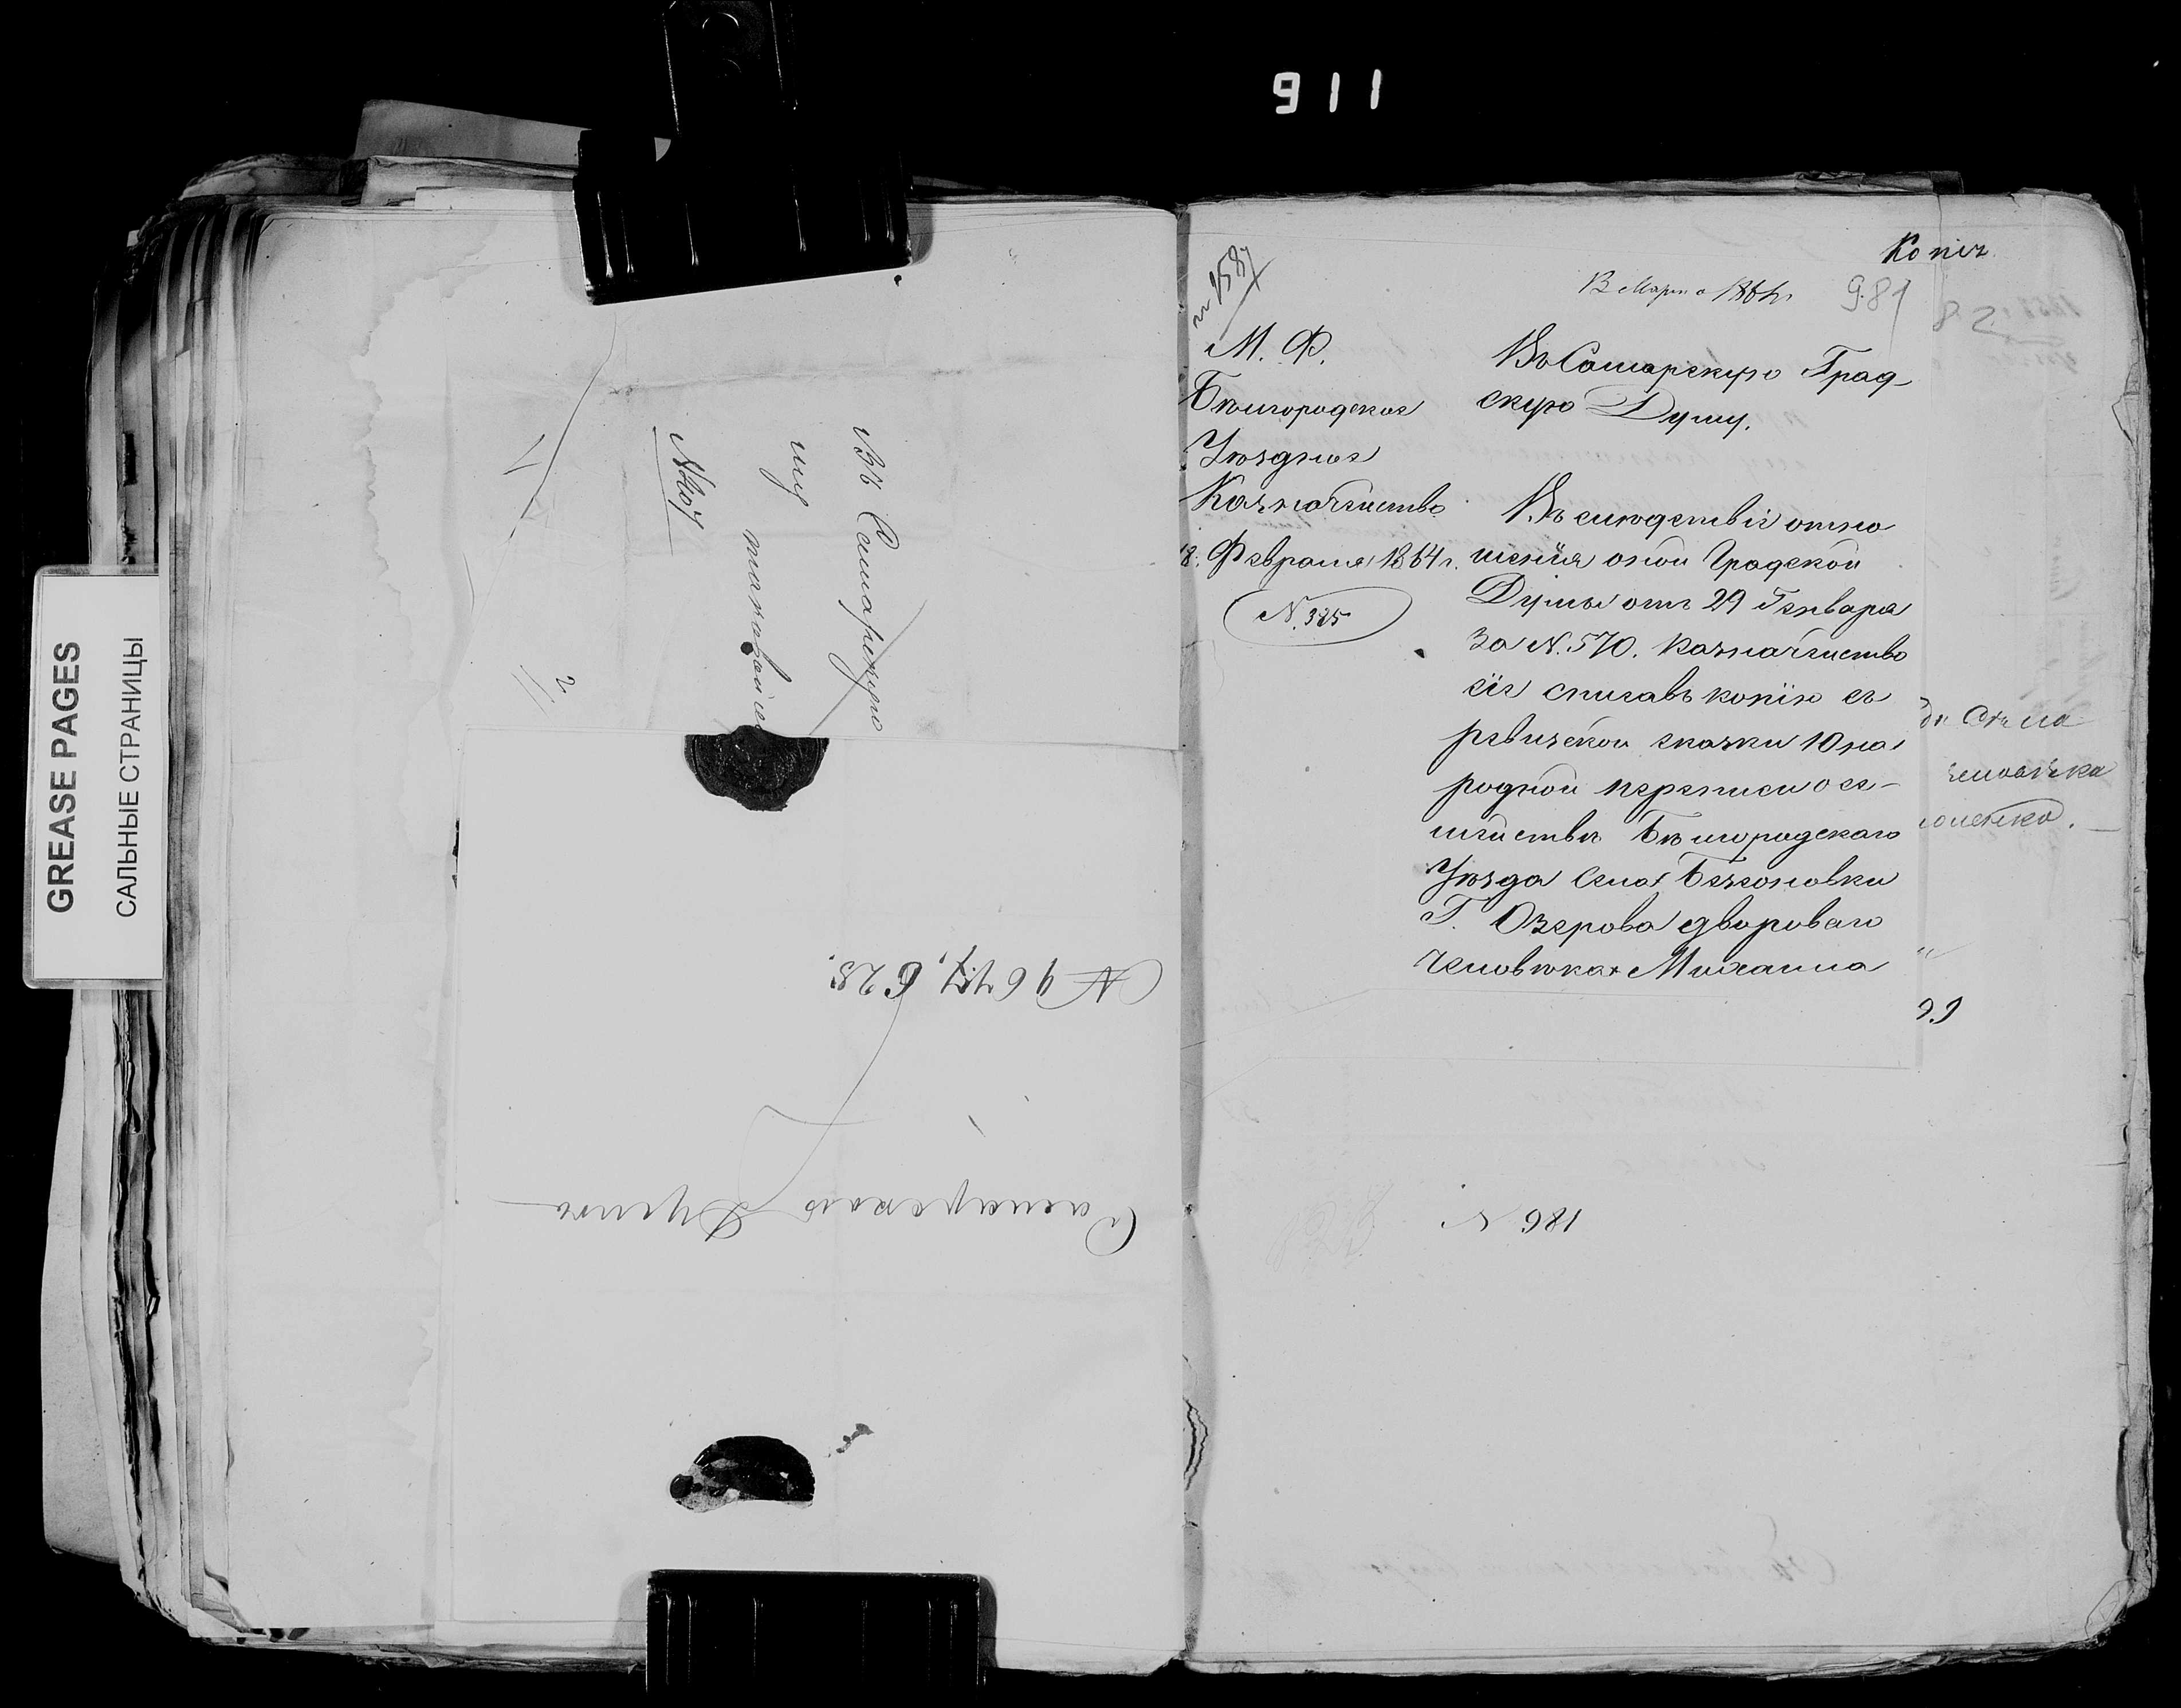 911
GREASE PAGES
САЛЬНЫЕ СТРАНИЦЫ
Въ Самарскую
№ 967, 628.
Самарской Думѣ
Копія
13 Марта 1864 г.
981
82
М. Ф.
Бѣлгородское
Уѣздное
Казначейство
18 Февраля 1864 г.
N. 325
Въ Самарскую Град-
скую Думу.
Въ слѣдствіе отно
шенія оной Градской
Думы отъ 29 Генваря
за N. 570. Казначейство
сіе списавъ копію съ
ревизской сказки 10 на
родной переписи о се-
мействѣ Бѣлгородскаго
Уѣзда Села Безсоновки
Г. Озерова двороваго
человѣка Михаила
да Села
человѣка
99
N 981